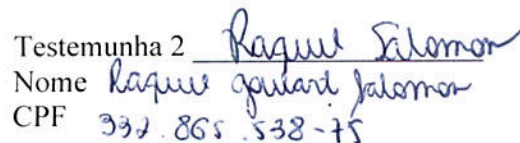 Testemunha 2 Raquel Salomon
Nome Raquel Goulart Salomon
CPF 332.865.538-75